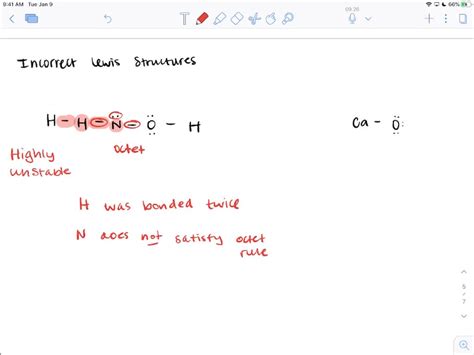 9:41 AM Tue Jan 9
66%
09:26
T
Incorrect Lewis Structures
H - H - N - O - H
Ca - O
Highly
unstable
octet
H was bonded twice
N does not satisfy octet
rule
5
/
7